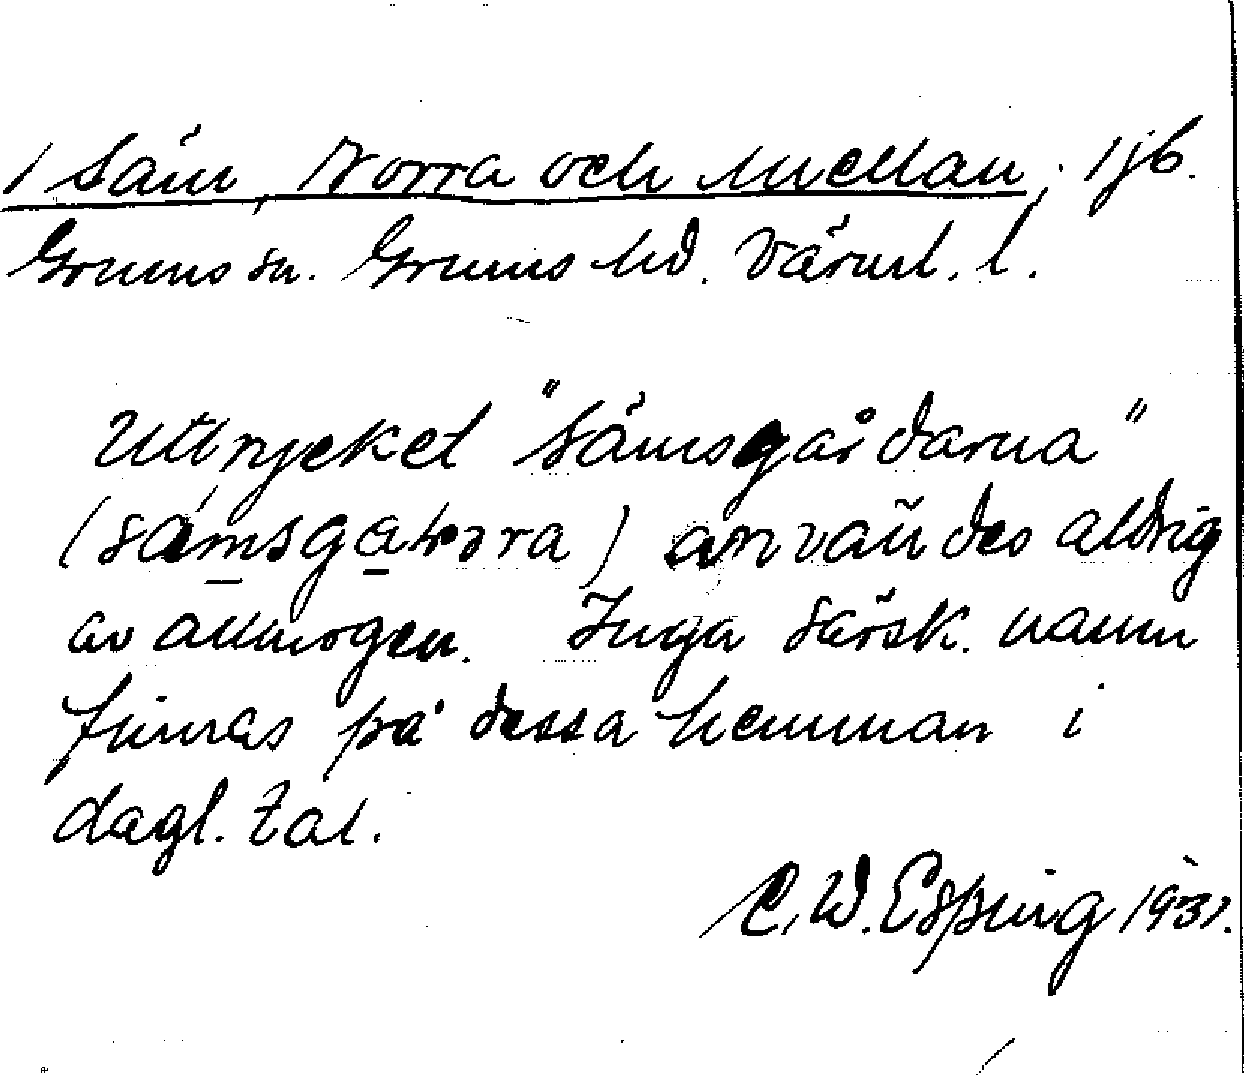 / Säm, Norra och Mellan; 1 jb.
Grums sn. Grums hd. Värml. l.
Uttrycket "Sämsgårdarna"
(sämsga ra) användes aldrig
av allmogen. Inga särsk. namn
finnas på dessa hemman i
dagl. tal.
C. W. Esping 1931.